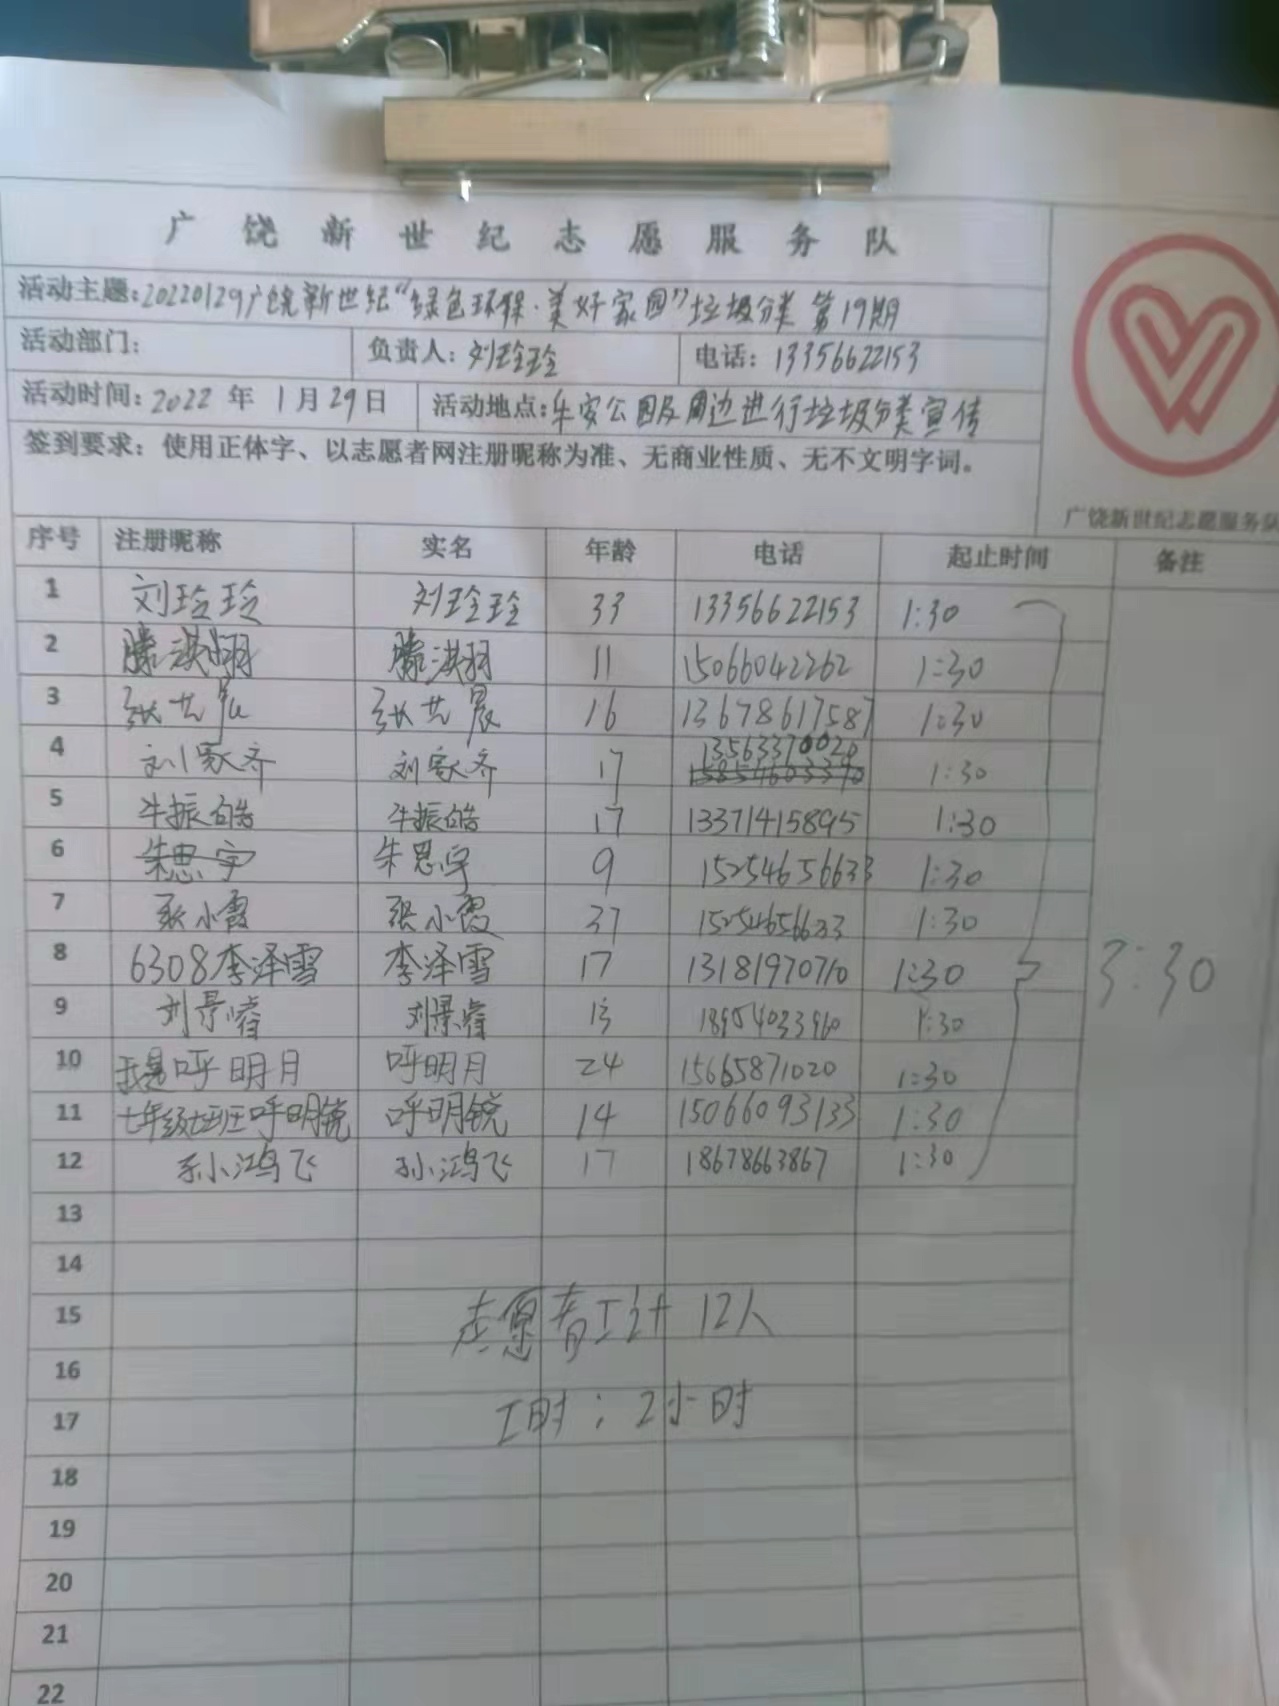 广饶新世纪志愿服务队
活动主题:20220129广饶新世纪“绿色环保·美好家园”垃圾分类 第19期
活动部门: 负责人:刘玲玲 电话:13356622153
活动时间:2022年1月29日 活动地点:牛安公园及周边进行垃圾分类宣传
签到要求:使用正体字、以志愿者网注册昵称为准、无商业性质、无不文明字词。
广饶新世纪志愿服务队
序号 注册昵称 实名 年龄 电话 起止时间 备注
1 刘玲玲 刘玲玲 33 13356622153 1:30
2 滕淇翔 滕淇羽 11 15066042262 1:30
3 张艺晨 张艺晨 16 13678617587 1:30
4 刘家齐 刘家齐 17 13563370020 1:30
5 牛振皓 牛振皓 17 13371415895 1:30
6 朱思宇 朱思宇 9 15254656633 1:30
7 张小霞 张小霞 37 15254656633 1:30
8 6308李泽雪 李泽雪 17 13181970710 1:30 3:30
9 刘景睿 刘景睿 13 18954033960 1:30
10 我是呼明月 呼明月 24 15665871020 1:30
11 七年级七班呼明镜 呼明镜 14 15066093133 1:30
12 孙鸿飞 孙鸿飞 17 18678663867 1:30
13
14
15 志愿者工计12人
16
17 工时:2小时
18
19
20
21
22